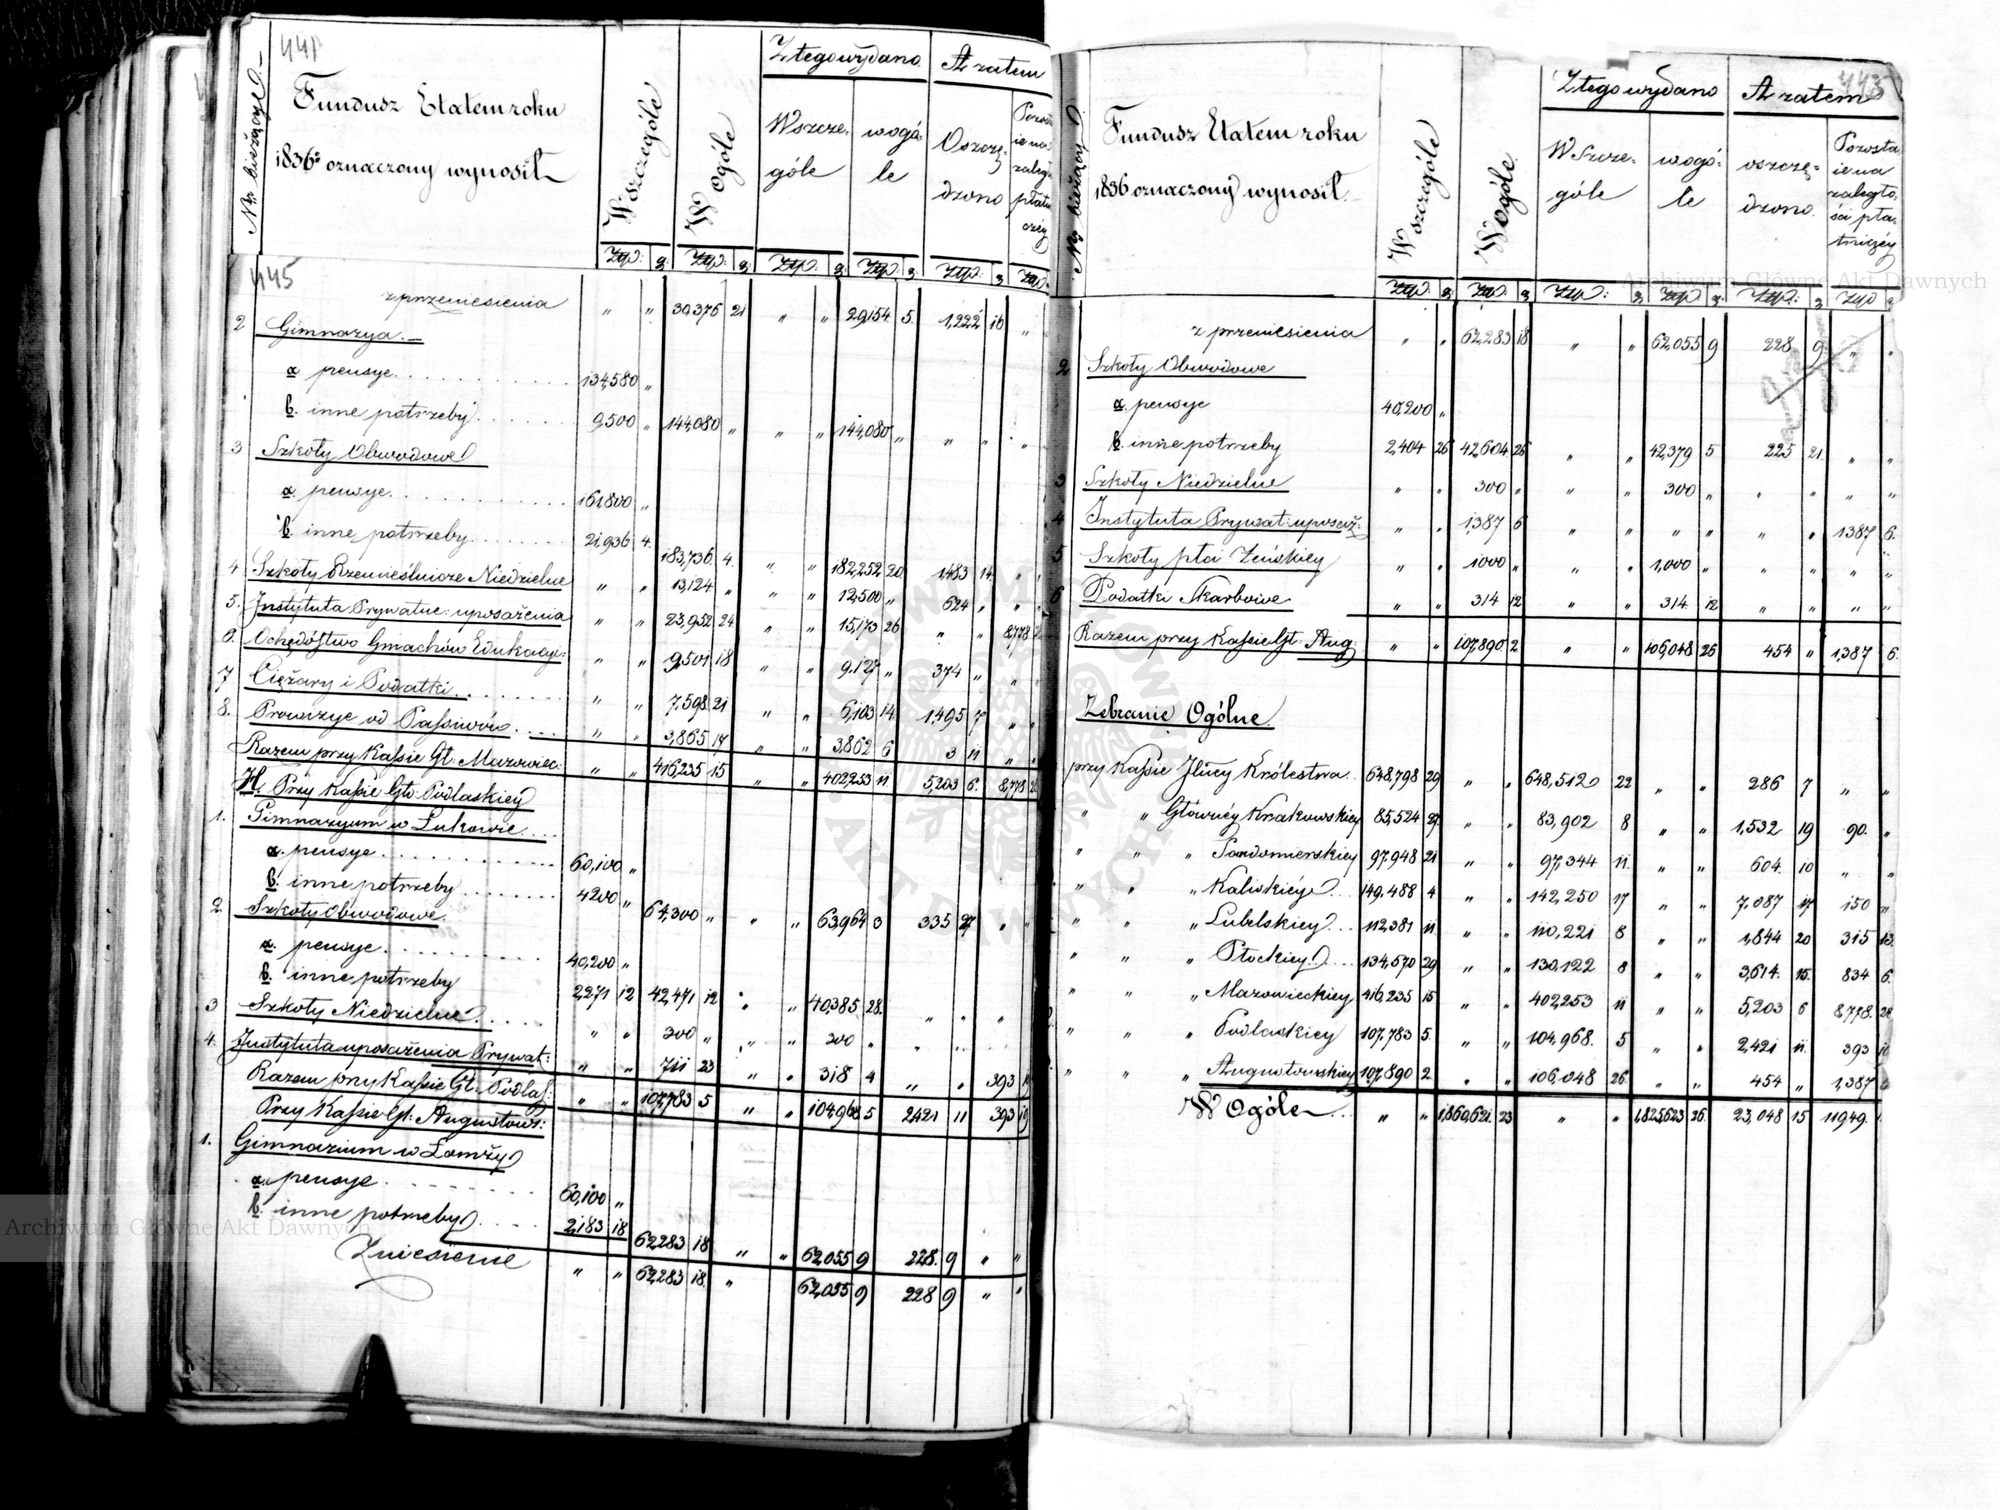 441
Nr. bieżący
Fundusz Etatem roku
1836º oznaczony wynosił
Wszczególe
Wogóle
Z tego wydano
Wszcze-
góle
wogó-
le
A zatem
Oszczę-
dzono
Złp: g. Złp: g. Złp: g. Złp: g. Złp: g. Złp.
445
z przeniesienia " " 30,376 21 " " 29,154 5. 1,222 16 "
2 Gimnazya. –
a pensye 134,580 "
b. inne potrzeby 9,500 " 144,080 " " " 144,080 " " " "
3 Szkoły Obwodowe
a. pensye 161,800 "
b. inne potrzeby 21,936 4. 183,736. 4. " " 182,252 20 1,483 14 "
4 Szkoły Rzemieślnicze Niedzielne " " 13,124 " " " 12,500 " 624 " "
5. Instytuta Prywatne: uposażenia " " 23,952 24 " " 15,173 26 " " 8,778
6. Ochędóstwo Gmachów Edukacyi: " " 9,501 18 " " 9,127 " 374 " "
7 Ciężary i Podatki " " 7,598 21 " " 6,103 14 1,495 7 "
8. Prowizye od Passiwów " " 3,865 17 " " 3,862 6 3 11 "
Razem przy Kassie Gł: Mazowiec: " " 416,235 15 " " 402,253 11 5,203 6. 8,778
H. Przy Kassie Głó: Podlaskiey
1. Gimnazyum w Łukowie
a. pensye 60,100 "
b. inne potrzeby 4200 " 64,300 " " " 63,964 3 335 27 "
2 Szkoły Obwodowe.
a. pensye 40,200 "
b. inne potrzeby 2,271 12 42,471 12 " " 40,385 28. " " "
3 Szkoły Niedzielne " " 300 " " " 300 " " "
4. Instytuta uposażenia Prywat: " " 711 23 " " 318 4 " " 393
Razem przy Kassie Gł: Podlas: " " 107,783 5 " " 104,968 5 2421 11 393 19
Przy Kassie Gł: Augustows:
1. Gimnazium w Łomży
a. pensye 60,100 "
b. inne potrzeby 2,183 18 62,283 18 " " 62,055 9 228. 9 " "
Zniesienie " " 62,283 18. " 62,055 9 228 9 " "
443
Nr. bieżący
Fundusz Etatem roku
1836 oznaczony wynosił.
Wszczególe
Wogóle
Z tego wydano
Wszcze-
góle
wogó-
le
A zatem
oszczę-
dzono.
Pozosta
ie na
zaległo-
ści pła-
tniczéy
Złp: g. Złp: g Złp: g. Złp g. Złp: g Złp g
z przeniesienia " " 62,283 18 " " 62,055 9 228 9 " "
2 Szkoły Obwodowe
a. pensye 40,200 "
b. inne potrzeby 2,404 26 42,604 26 " " 42,379 5 225 21. " "
3 Szkoły Niedzielne " " 300 " " " 300 " " " " "
4 Instytuta Prywat: uposaż: " " 1,387 6 " " " " " " 1387 6.
5 Szkoły płci Żeńskiey " " 1000 " " " 1,000 " " " " "
6 Podatki Skarbowe " " 314 12 " " 314 12 " " " "
Razem przy Kassie Gł. Aug " " 107,890 2 " " 106,048 26 454 " 1,387 6.
Zebranie Ogólne.
przy Kassie Jlney Królestwa 648,798 29 " " 648,512 22 " " 286 7 " "
" " Głównéy Krakowskiey 85,524 27 " " 83,902 8 " " 1,532 19 90. "
" " " Sandomierskiey 97,948 21 " " 97,344 11. " " 604. 10 " "
" " " Kaliskiéy 149,488 4 " " 142,250 17 " " 7,087 17 150 "
" " " Lubelskiey 112,381 11 " " 110,221 8 " " 1,844 20 315 13.
" " " Płockiey 134,570 29 " " 130,122 8 " " 3,614. 15. 834 6.
" " " Mazowieckiey 416,235 15 " " 402,253 11 " " 5,203 6 8,778. 28
" " " Podlaskiey 107,783 5. " " 104,968. 5 " " 2,421 11. 393
" " " Augustowskiey 107,890 2. " " 106,048 26. " " 454 " 1,387
W Ogóle " " 1,860,621. 23 " " 1,825,623 26. 23,048 15 11949.
Archiwum Główne Akt Dawnych
Archiwum Główne Akt Dawnych